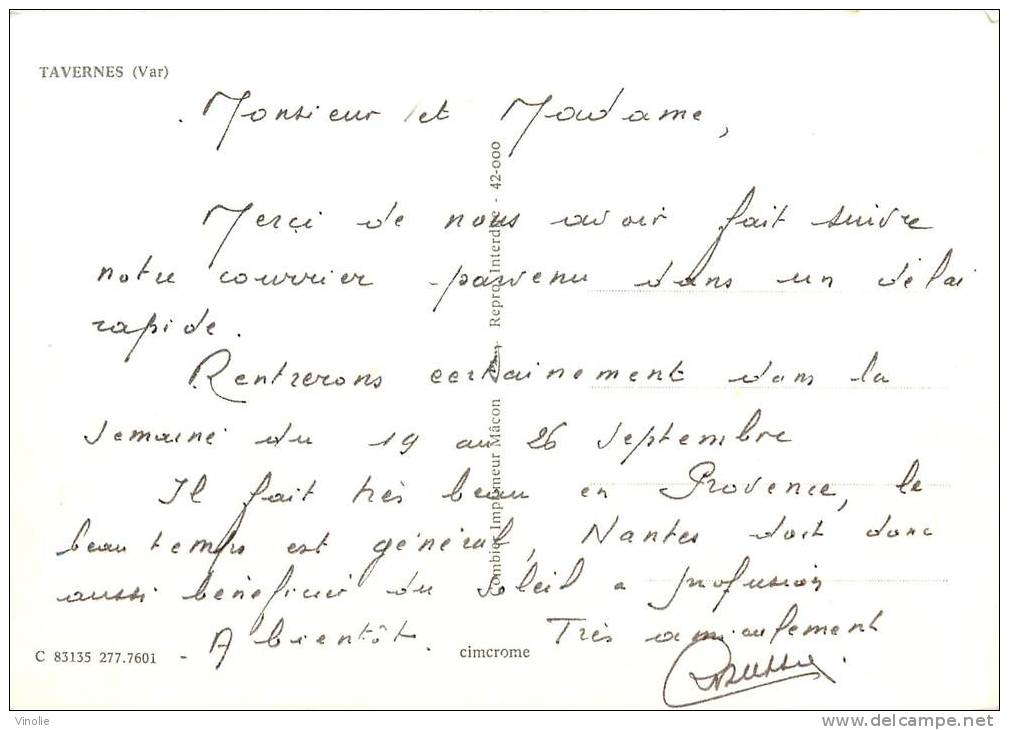 TAVERNES (Var)
Monsieur et Madame,
Merci de nous avoir fait suivre
notre courrier parvenu dans un délai
rapide.
Rentrerons certainement dans la
semaine du 19 au 26 Septembre
Il fait très beau en Provence, le
beau temps est général, Nantes doit donc
aussi bénéficier du soleil a profusion
A bientôt. Très amicalement
C 83135 277.7601 - cimcrome
Combier Imprimeur Mâcon Repro. Interdite - 42-000
Vinolie
www.delcampe.net